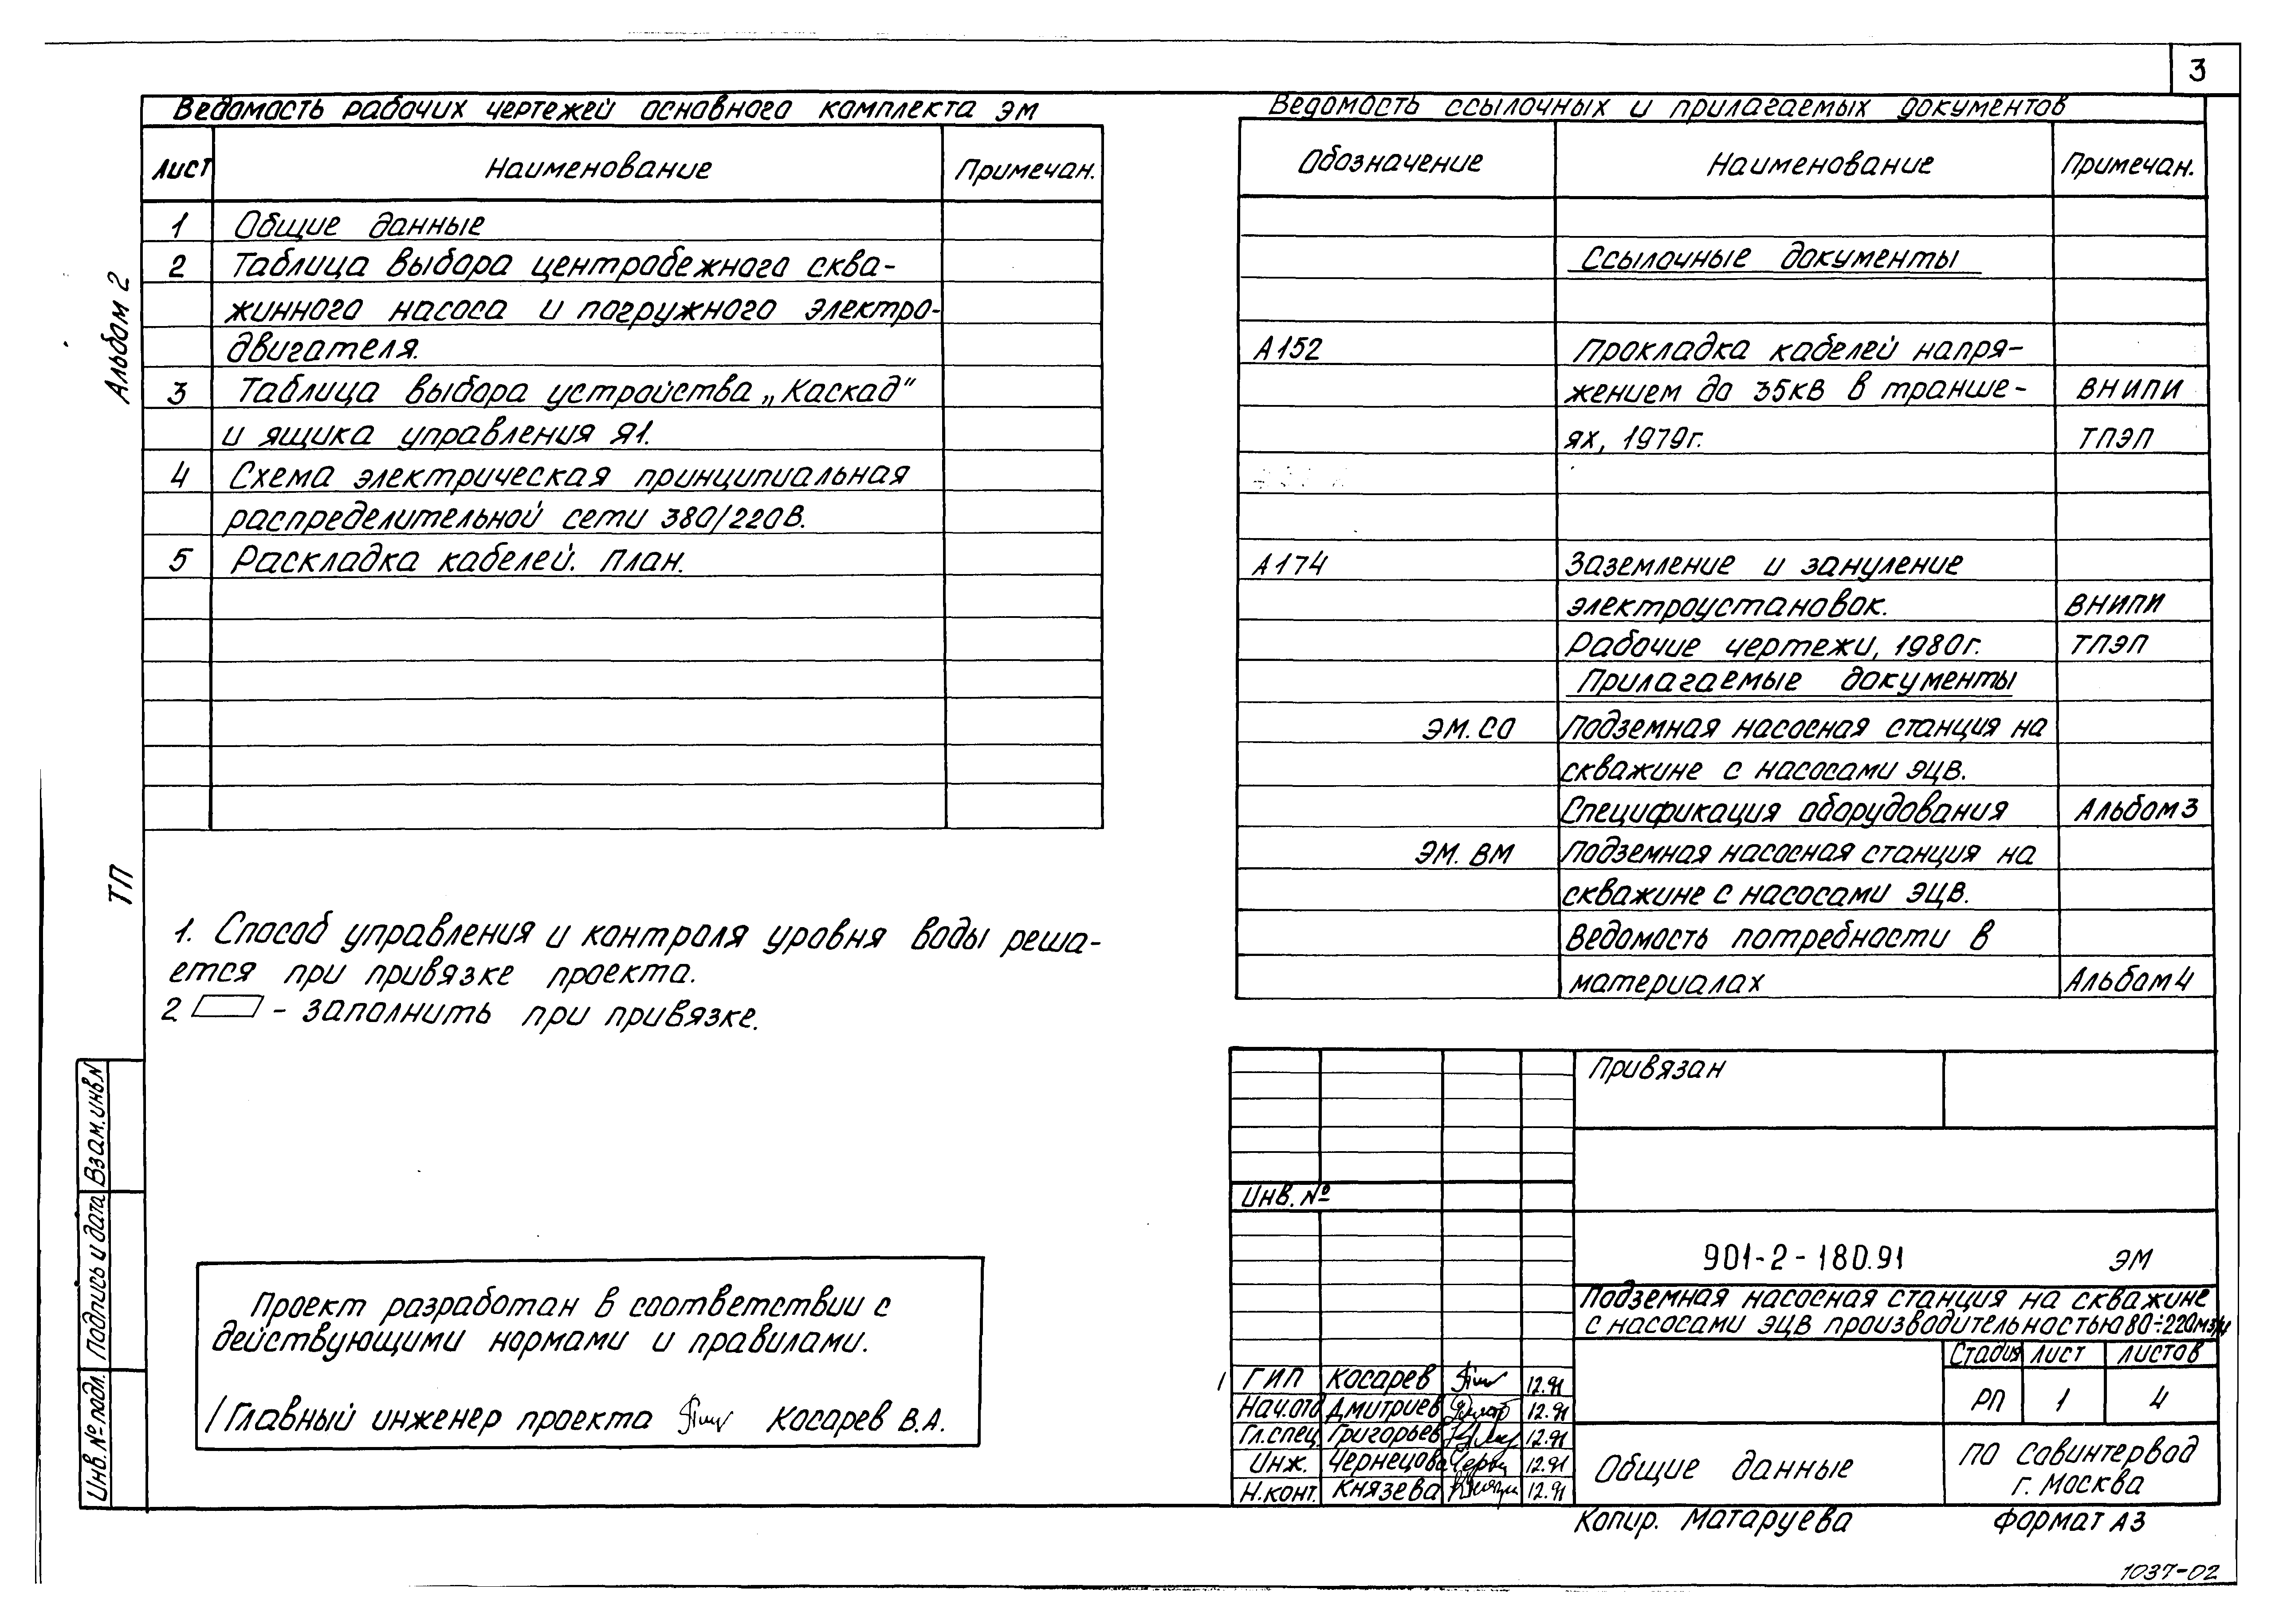 3
Ведомость рабочих чертежей основного комплекта ЭМ
Лист Наименование Примечан.
1 Общие данные
2 Таблица выбора центробежного сква-
жинного насоса и погружного электро-
двигателя.
3 Таблица выбора устройства „Каскад"
и ящика управления Я1.
4 Схема электрическая принципиальная
распределительной сети 380/220В.
5 Раскладка кабелей. План.
Альбом 2
ТП
1. Способ управления и контроля уровня воды реша-
ется при привязке проекта.
2 - заполнить при привязке.
Взам. инв. N
Подпись и дата
Инв. № подл.
Проект разработан в соответствии с
действующими нормами и правилами.
Главный инженер проекта Косарев В.А.
Ведомость ссылочных и прилагаемых документов
Обозначение Наименование Примечан.
Ссылочные документы
А152 Прокладка кабелей напря-
жением до 35кВ в транше- ВНИПИ
ях, 1979г. ТПЭП
А174 Заземление и зануление
электроустановок. ВНИПИ
Рабочие чертежи, 1980г. ТПЭП
Прилагаемые документы
ЭМ. СО Подземная насосная станция на
скважине с насосами ЭЦВ.
Спецификация оборудования Альбом 3
ЭМ. ВМ Подземная насосная станция на
скважине с насосами ЭЦВ.
Ведомость потребности в
материалах Альбом 4
Привязан
Инв. №
901-2-180.91 ЭМ
Подземная насосная станция на скважине
с насосами ЭЦВ производительностью 80÷220м3/ч
Стадия Лист Листов
РП 1 4
ГИП Косарев 12.91
Нач.отд Дмитриев 12.91
Гл.спец. Григорьев 12.91
Инж. Чернецова 12.91
Н.конт. Князева 12.91
Общие данные
ПО Совинтервод
г. Москва
Копир. Матаруева Формат А3
1037-02